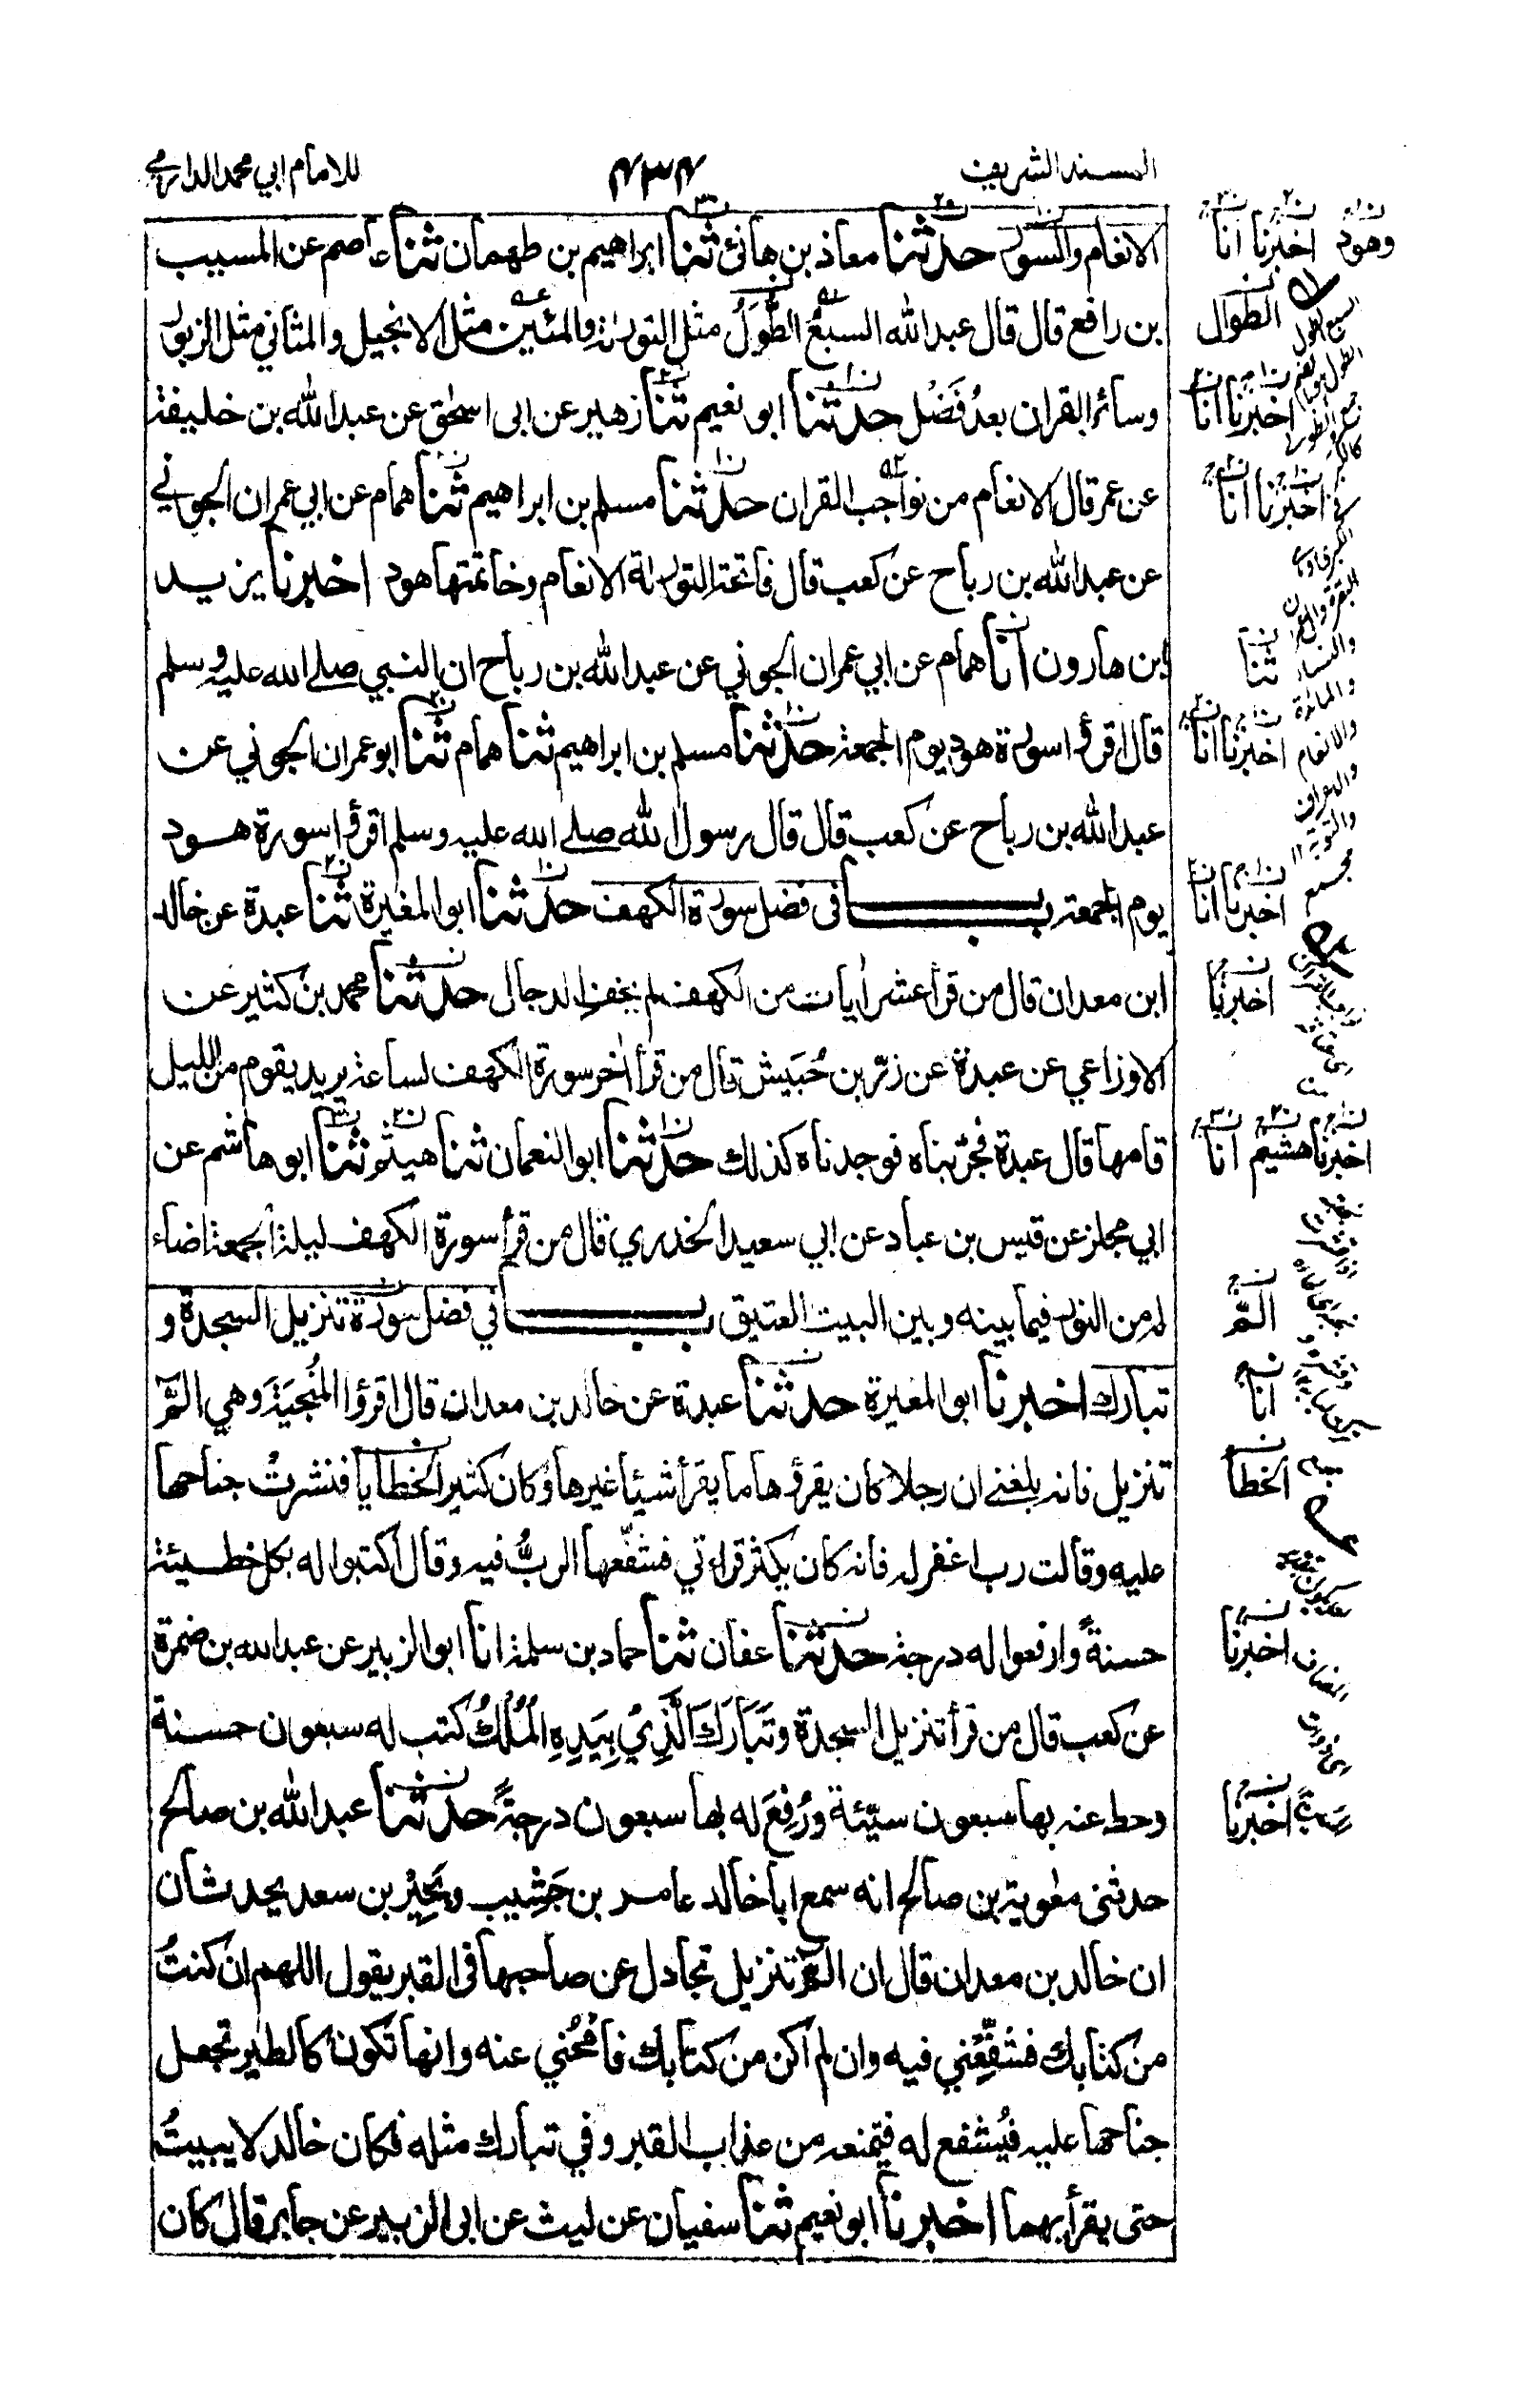 المسند الشريف ٤٣٤ للامام ابي محمد الدارمي
الانعام والسور حدثنا معاذ بن هانئ ثنا ابراهيم بن طهمان ثنا عاصم عن المسيب
بن رافع قال قال عبد الله السبعُ الطُّوَلُ مثل التورىة والمئين مثل الانجيل والمثاني مثل الزبور
وسائر القران بعدُ فَضْلٌ حدثنا ابو نعيم ثنا زهير عن ابى اسحٰق عن عبد الله بن خليفة
عن عمر قال الانعام من نواجب القران حدثنا مسلم بن ابراهيم ثنا همام عن ابي عمران الجوني
عن عبد الله بن رباح عن كعب قال فاتحة التورىة الانعام وخاتمتها هود اخبرنا يزيد
ابن هارون انا همام عن ابي عمران الجوني عن عبد الله بن رباح ان النبي صلے الله عليه وسلم
قال اقرؤا سورة هود يوم الجمعة حدثنا مسلم بن ابراهيم ثنا همام ثنا ابو عمران الجوني عن
عبد الله بن رباح عن كعب قال قال رسول الله صلے الله عليه وسلم اقرؤا سورة هود
يوم الجمعة باب فى فضل سورة الكهف حدثنا ابو المغيرة ثنا عبدة عن خالد
ابن معدان قال من قرأ عشر اٰيات من الكهف لم يخف الدجال حدثنا محمد بن كثير عن
الاوزاعي عن عبدة عن زرّ بن حُبَيش قال من قرأ اٰخر سورة الكهف لساعة يريد يقوم من الليل
قامها قال عبدة فجرّبناه فوجدناه كذلك حدثنا ابو النعمان ثنا هيثم ثنا ابو هاشم عن
ابي مجلز عن قيس بن عباد عن ابي سعيد الخدري قال من قرأ سورة الكهف ليلة الجمعة اضاء
له من النور فيما بينه وبين البيت العتيق باب في فضل سورة تنزيل السجدة و
تبارك اخبرنا ابو المغيرة حدثنا عبدة عن خالد بن معدان قال اقرؤا المُنجيَةَ وهي الٓمّٓ
تنزيل فانه بلغنے ان رجلا كان يقرؤها ما يقرأ شيئا غيرها وكان كثير الخطايا فنشرتْ جناحها
عليه وقالت رب اغفر له فانه كان يكثر قراءتي فشفّعها الربُّ فيه وقال اكتبوا له بكل خطيئة
حسنةً وارفعوا له درجة حدثنا عفان ثنا حماد بن سلمة انا ابو الزبير عن عبد الله بن ضمرة
عن كعب قال من قرأ تنزيل السجدة وتَبَارَكَ الَّذِيْ بِيَدِهِ الْمُلْكُ كتب له سبعون حسنة
وحط عنه بها سبعون سيّئة ورُفِعَ له بها سبعون درجةً حدثنا عبد الله بن صالح
حدثنى معٰوية بن صالح انه سمع ابا خالد عامر بن جَشِيب وبَحِيْر بن سعد يحدثان
ان خالد بن معدان قال ان الٓمّٓ تنزيل تجادل عن صاحبها فى القبر يقول اللهم ان كنتُ
من كتابك فشَفِّعْني فيه وان لم اكن من كتابك فامْحُني عنه وانها تكون كالطير تجعل
جناحها عليه فيُشفع له فتمنعه من عذاب القبر وفي تبارك مثله فكان خالد لا يبيتُ
حتى يقرأ بهما اخبرنا ابو نعيم ثنا سفيان عن ليث عن ابى الزبير عن جابر قال كان
وهود اخبرنا انا
الطوال
اخبرنا انا
اخبرنا انا
ثنا
اخبرنا انا
اخبرنا انا
اخبرنا
اخبرنا هشيم انا
الٓمّٓ
انا
الخطأ
اخبرنا
اخبرنا